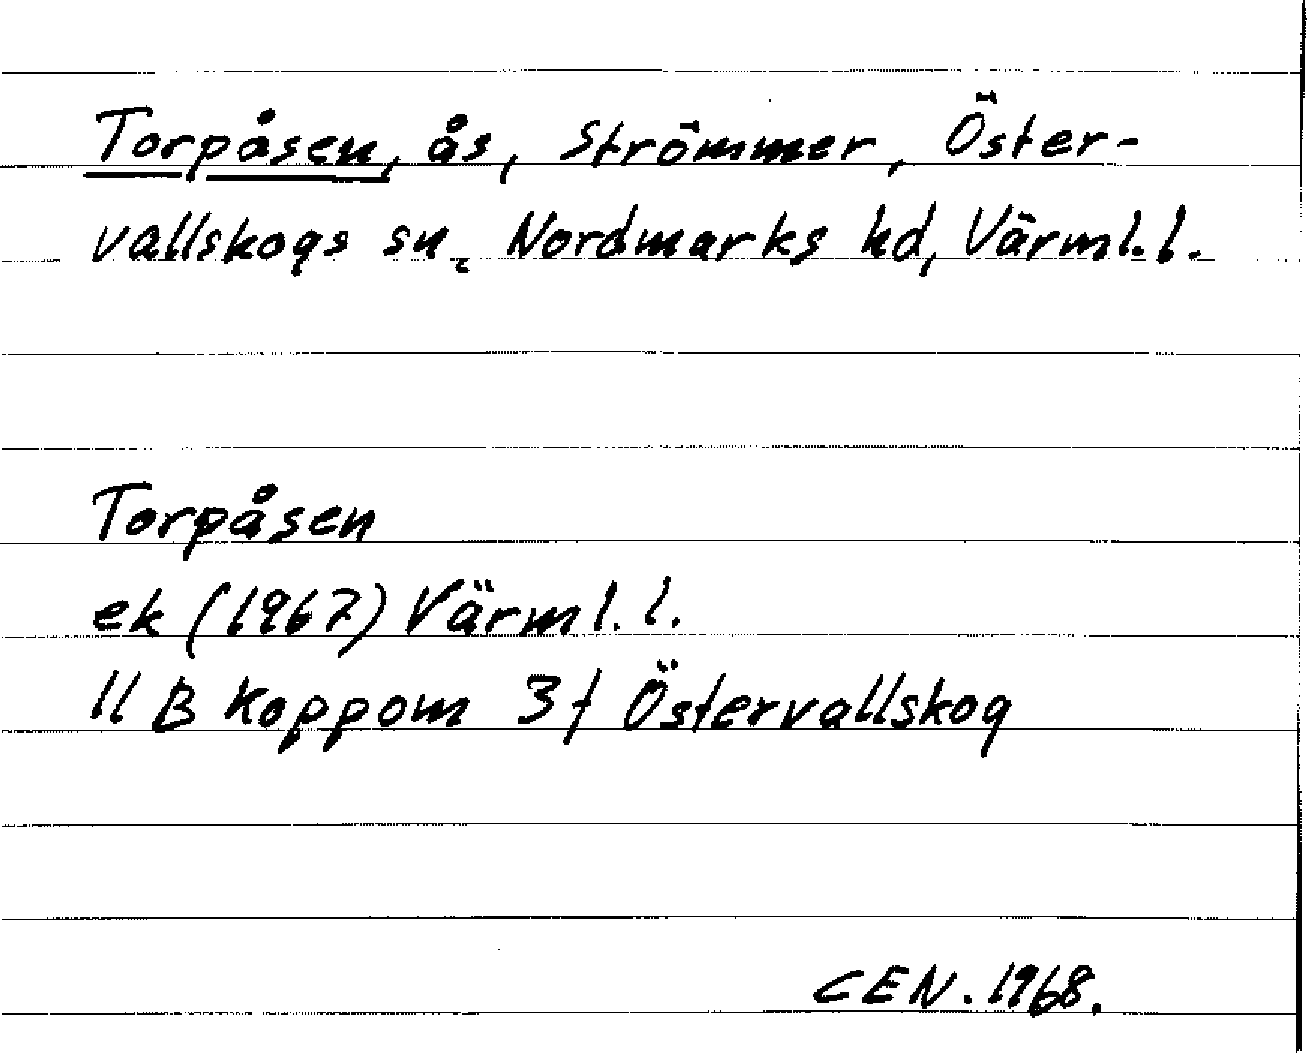 Torpåsen, ås, Strömmer, Öster-
vallskogs sn, Nordmarks hd, Värml. l.
Torpåsen
ek (1967) Värml. l.
11 B Koppom 3f Östervallskog
CEN. 1968.